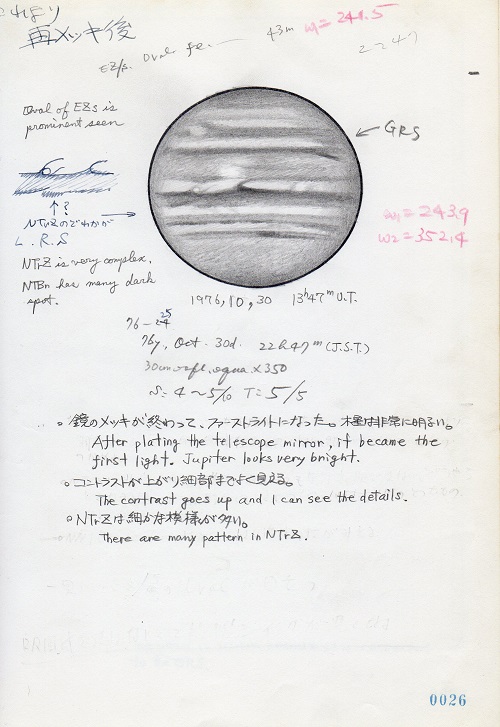 これより
再メッキ後
43m ω1=241.5
2247
EZ/s. oval
Oval of EZs is
prominent seen
← GRS
↑?
NTrZのどれかが
L.R.S
ω1=243.9
ω2=352.4
NTrZ is very complex.
NTBn has many dark
spot.
1976, 10, 30 13h47m U.T.
76-
76y, Oct. 30d. 22h47m (J.S.T.)
30cm refl. equa x350
S=4~5/10 T=5/5
○鏡のメッキが終わって、ファーストライトになった。木星は非常に明るい。
After plating the telescope mirror, it became the
first light. Jupiter looks very bright.
○コントラストが上がり細部までよく見える。
The contrast goes up and I can see the details.
○NTrZは細かな模様が多い。
There are many pattern in NTrZ.
0026